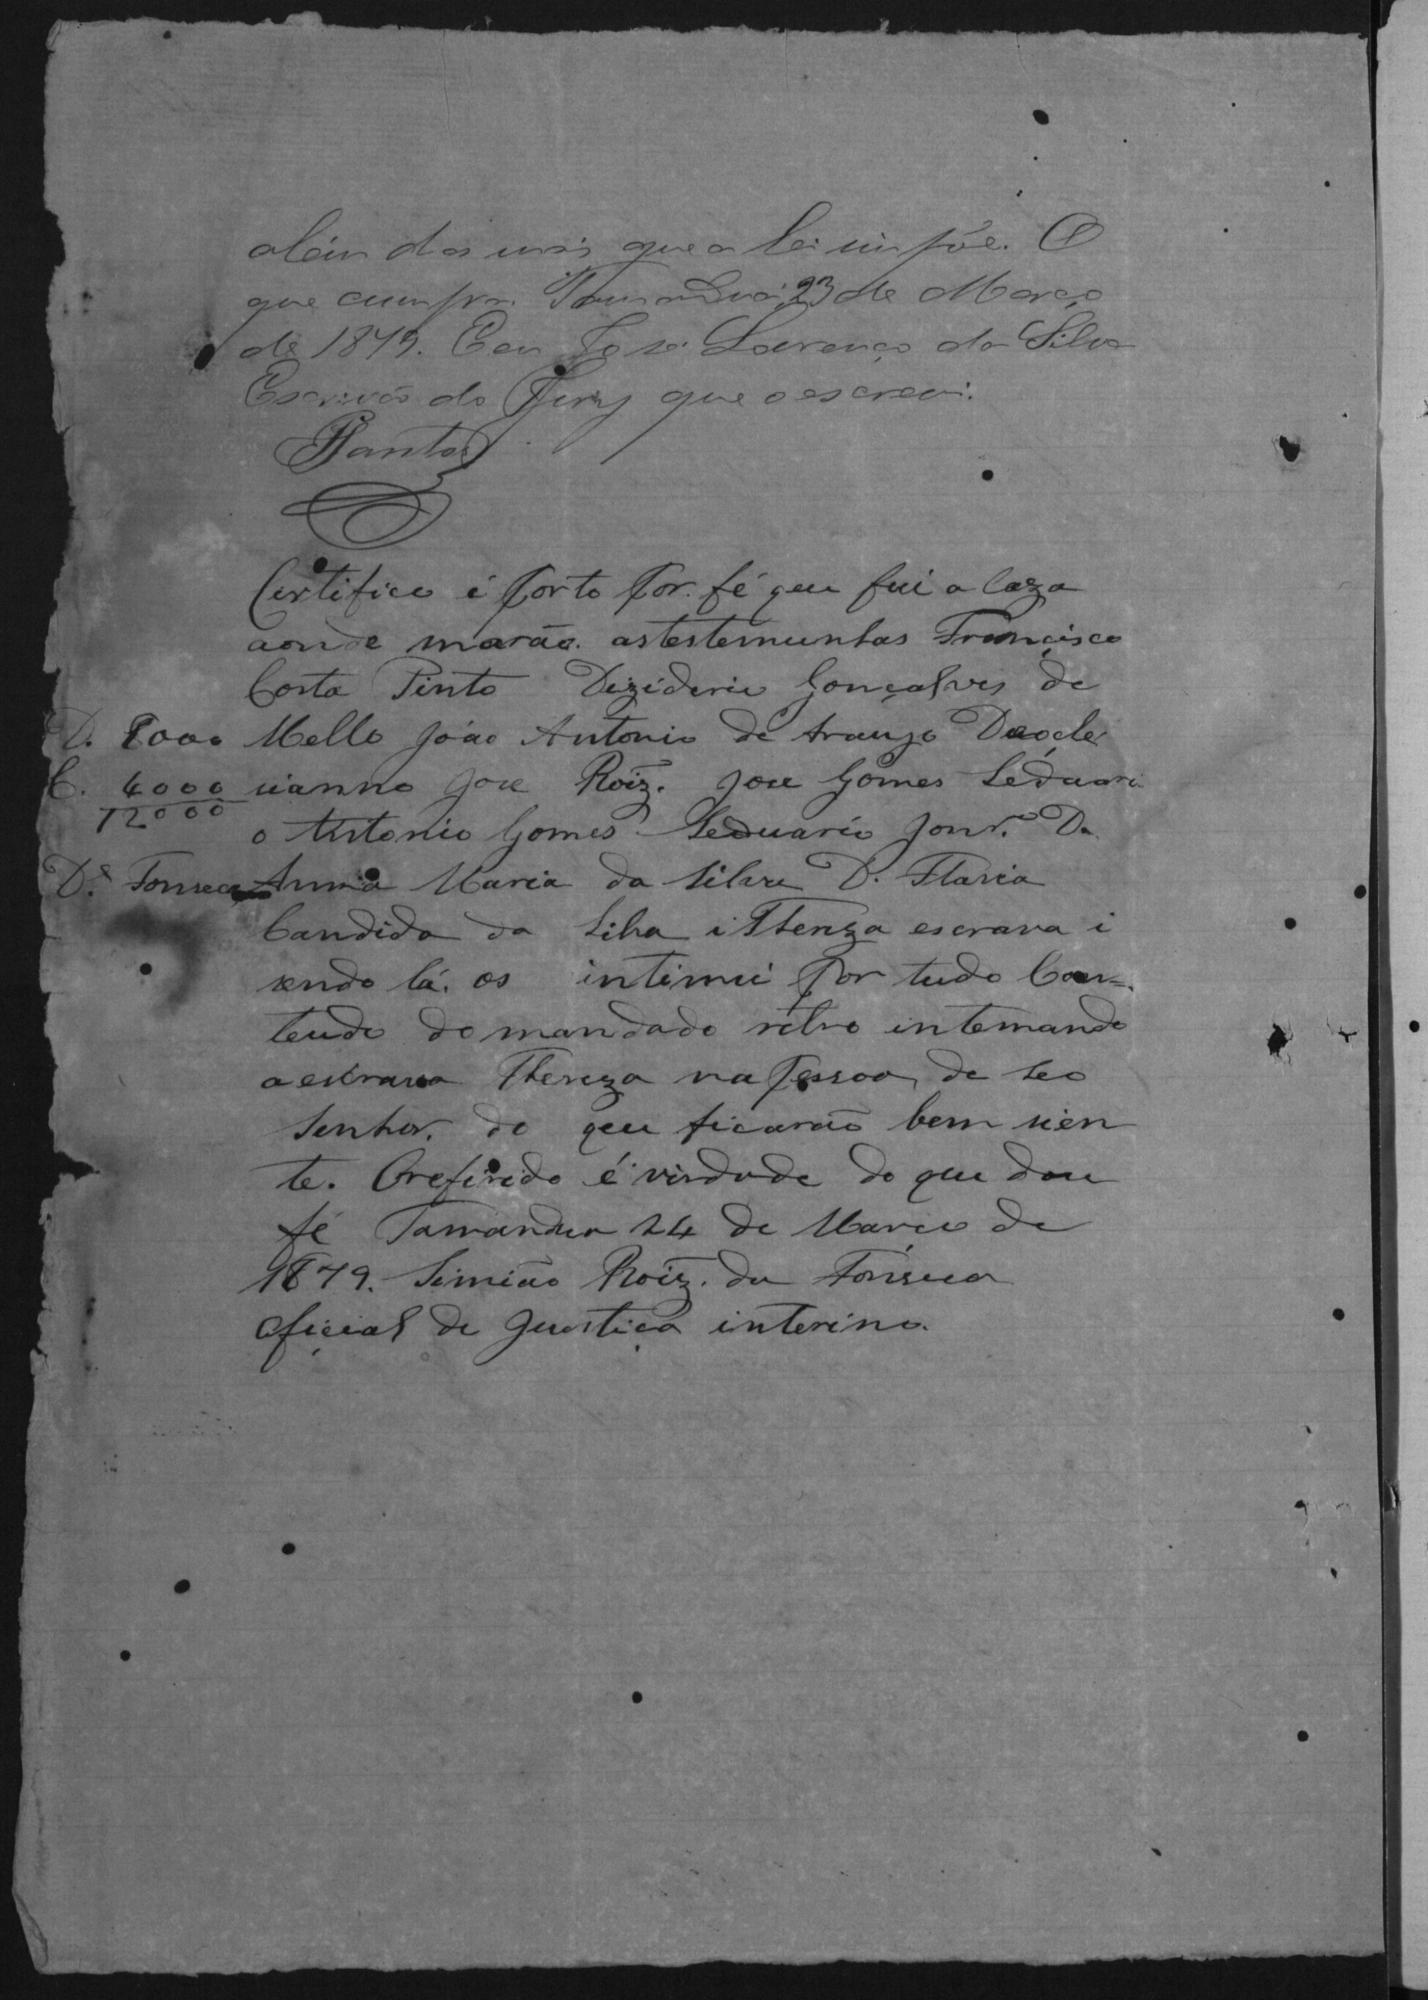 alem das mais que a lei impõe. O
que cumpra. Tamanduá, 23 de Março
de 1879. Eu José Lourenço da Silva
Escrivão do Jury que o escrevi.
Santos
Certifico é porto por fé que fui a caza
aonde morão as testemunhas Francisco
Costa Pinto Deziderio Gonçalves de
D. 8000 Mello João Antonio de Araujo Deocle
C. 4000 cianno Jose Roiz. Jose Gomes Seduari
12000
o Antonio Gomes Seduario Jonr. D.
D.s Fonseca Anna Maria da Silva D. Flavia
Candida da Silva i Thereza escrava i
sendo lá. os intimei por tudo Con=
teudo do mandado retro intemando
a escrava Thereza na pessoa de seo
Senhor. do que ficarão bem cien
te. O referido é verdade do que dou
fé Tamandua 24 de Marco de
1879. Simião Roiz. da Fonseca
Oficial de Justiça interino.